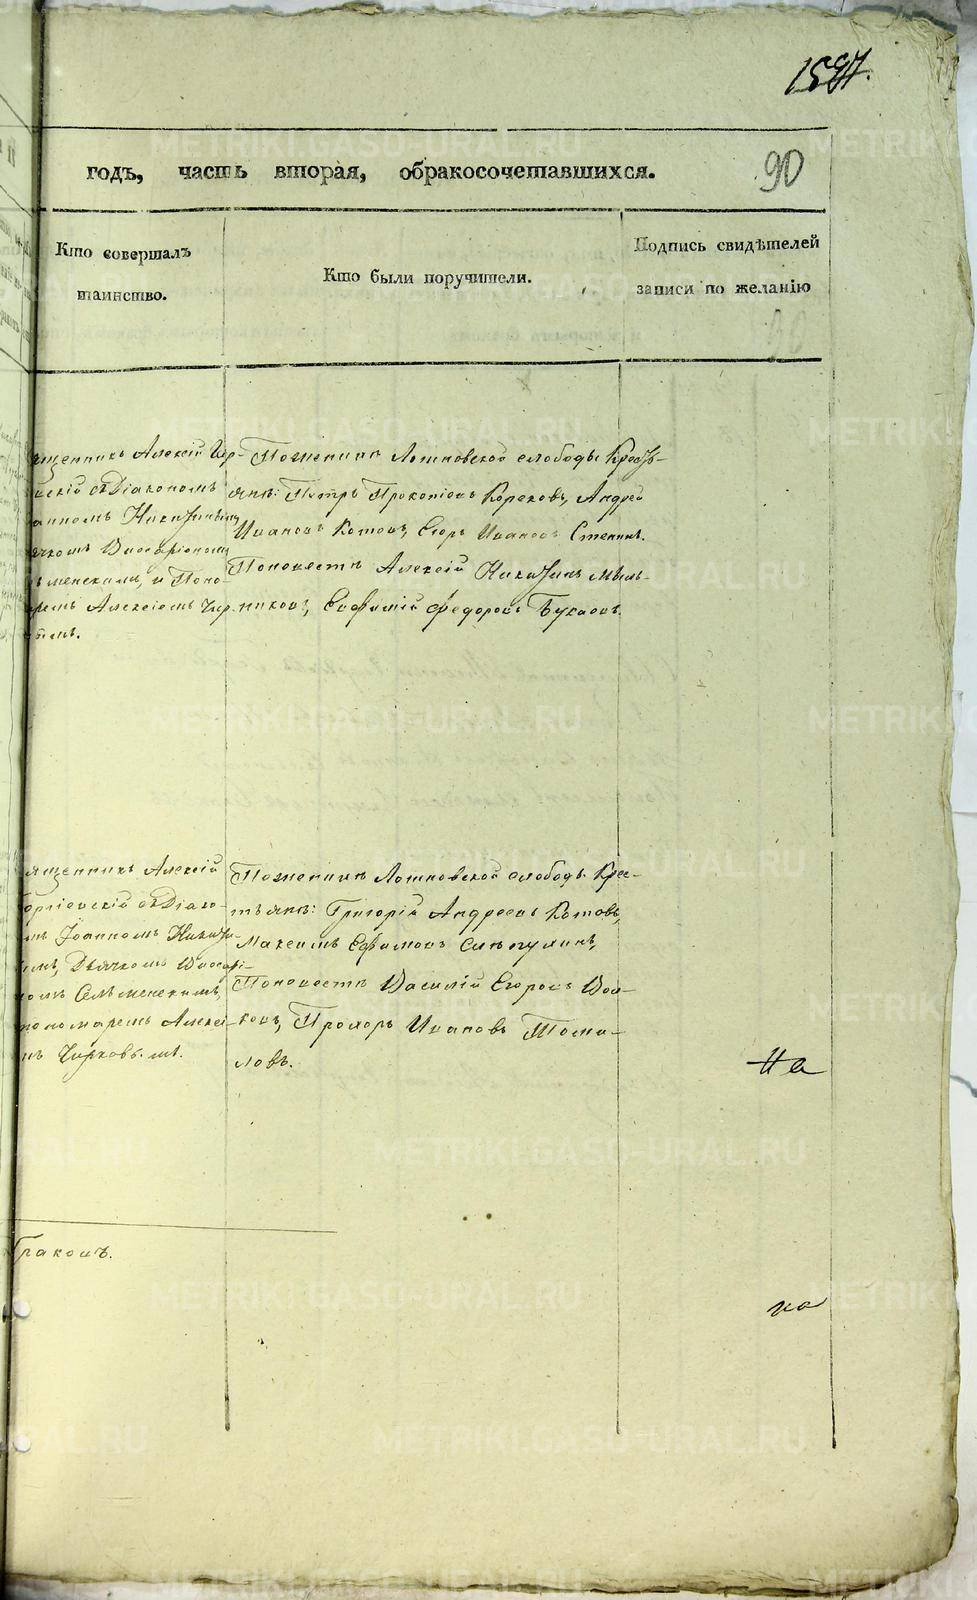 1597.
годъ, часть вторая, обракосочетавшихся.
90
Кто совершалъ
таинство.
Кто были поручители.
Подпись свидѣтелей
записи по желанію
ященникъ Алексій
скій съ Діакономъ
анномъ
ячкомъ Виссаріономъ
менскимъ, и Поно-
ремъ Алексіемъ Чир-
вымъ.
По женихѣ Логиновской слободы Кресть-
янѣ: Петръ Прокопіевъ Корековъ, Андрей
Ивановъ Котовъ, Егоръ Ивановъ Степинъ.
По невестѣ Алексій Никитинъ Мель-
никовъ, Евфимій Федоровъ
ященникъ Алексій
оргіевскій съ Діако-
мъ Іоанномъ
имъ, Дьячкомъ Виссарі-
номъ Семеменскимъ,
пономаремъ Алексі-
мъ Чирковымъ.
По женихѣ слободы Крес-
тьянѣ: Григорій Андреевъ Котовъ,
Максимъ Ефимовъ
По невестѣ Василій Егоровъ Вол-
ковъ, Прохоръ Ивановъ Тома-
ловъ.
На
браковъ.
на
METRIKI.GASO-URAL.RU